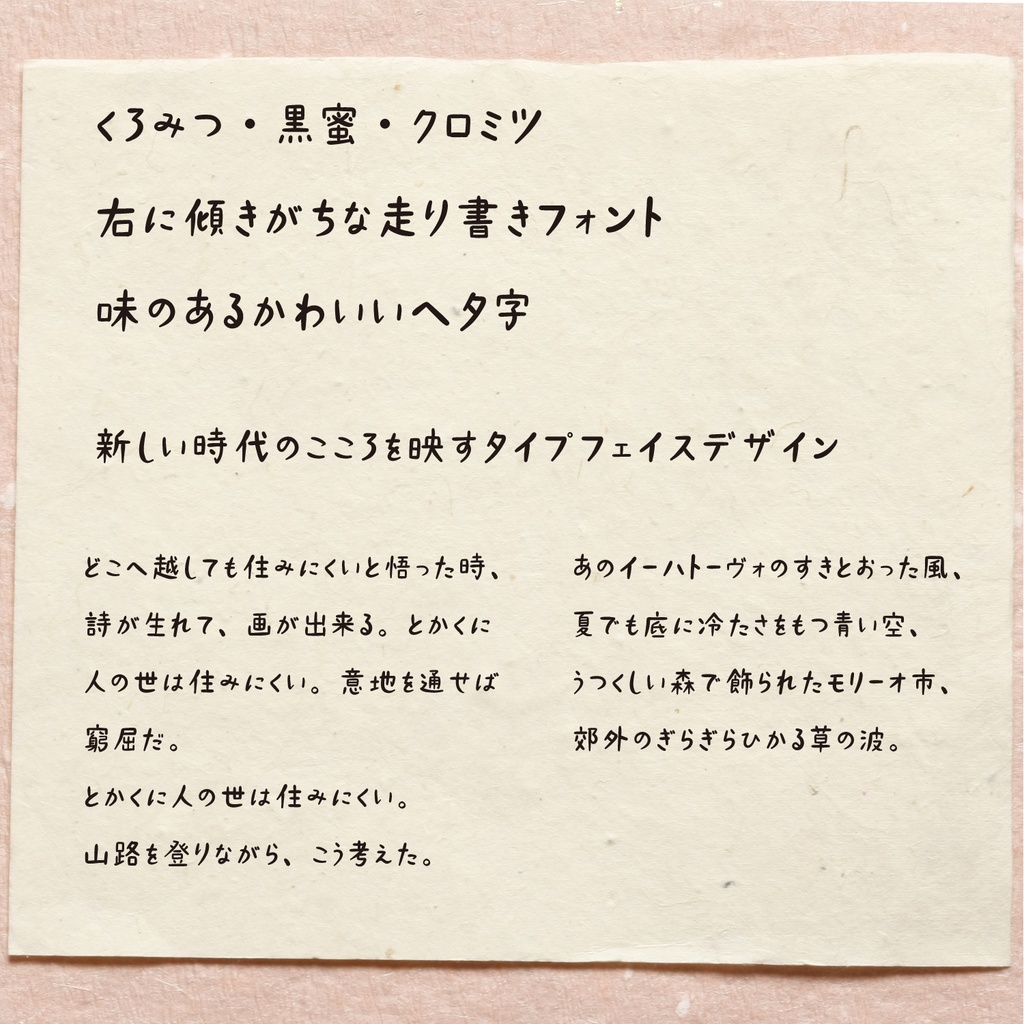 くろみつ・黒蜜・クロミツ
右に傾きがちな走り書きフォント
味のあるかわいいヘタ字
新しい時代のこころを映すタイプフェイスデザイン
どこへ越しても住みにくいと悟った時、
詩が生れて、画が出来る。とかくに
人の世は住みにくい。意地を通せば
窮屈だ。
とかくに人の世は住みにくい。
山路を登りながら、こう考えた。
あのイーハトーヴォのすきとおった風、
夏でも底に冷たさをもつ青い空、
うつくしい森で飾られたモリーオ市、
郊外のぎらぎらひかる草の波。